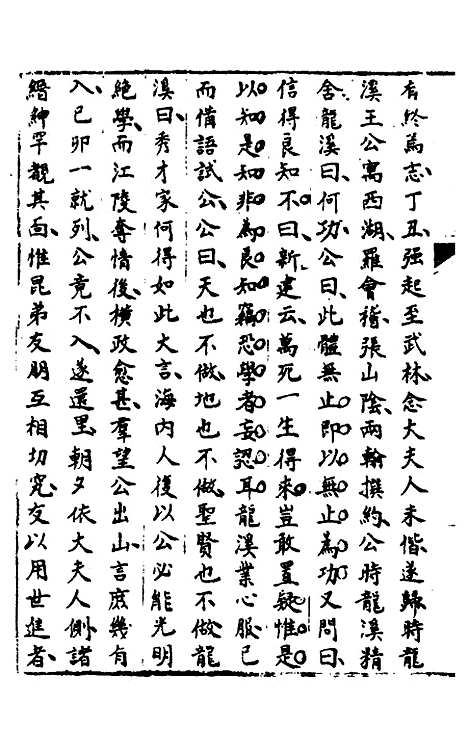 有終焉志丁丑強起至武林念大夫人未偕遂歸時龍
溪王公寓西湖羅會稽張山陰兩翰撰約公時龍溪精
舍龍溪曰何功公曰此體無止即以無止為功又問曰
信得良知不曰新建云萬死一生得來豈敢置疑惟是
以知是知非為良知竊恐學者妄認耳龍溪業心服已
而借語試公公曰天也不做地也不做聖賢也不做龍
溪曰秀才家何得如此大言海內人後以公必能光明
絕學而江陵奪情後橫政愈甚羣望公出山言庶幾有
入己卯一就列公竟不入遂還里朝夕依大夫人側諸
縉紳罕覩其面惟昆弟友朋互相切究友以用世進者